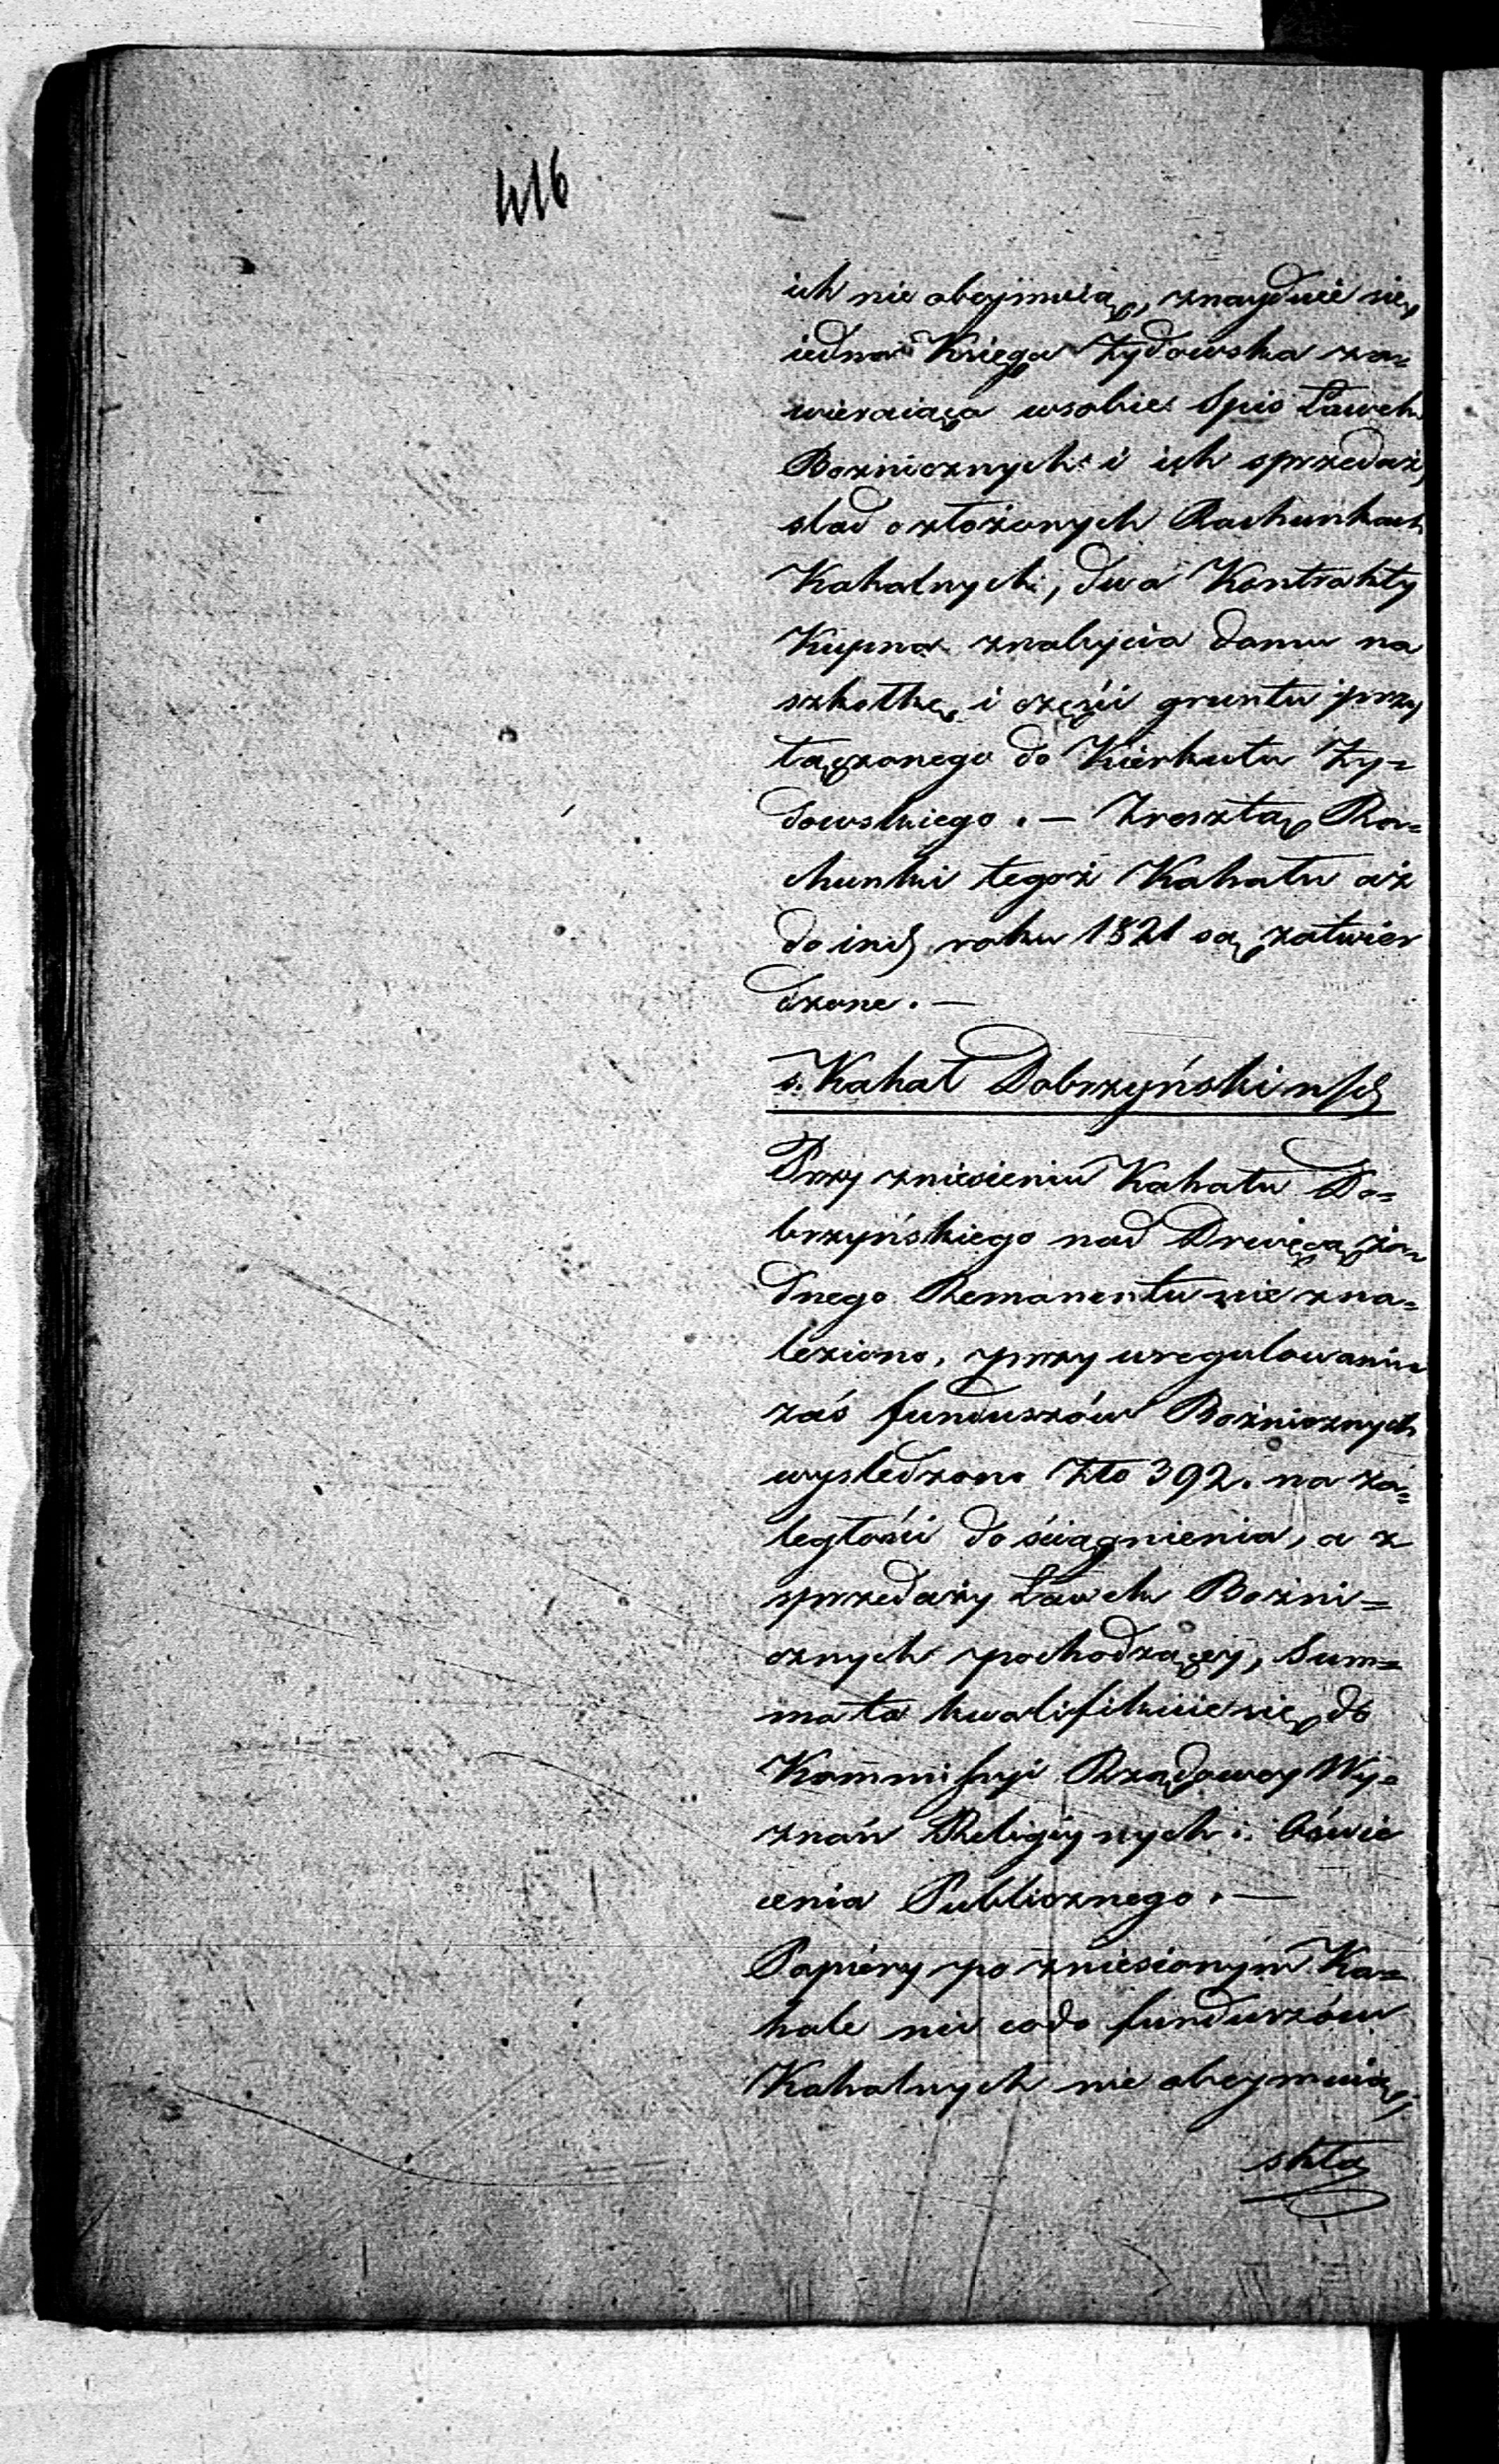 416
ich nie obejmuią, znayduie się
iedna Księga Żydowska za=
wieraiąca w sobie Spis Ławek
Boznicznych i ich sprzedaż,
slad o złożonych Rachunkach
Kahalnych, dwa Kontrakty
Kupna z nabycia domu na
szkołkę, i części gruntu przy
łączonego do Kierkutu Ży=
dowskiego. — Zresztą Ra=
chunki tegoż Kahału aż
do roku 1821 są zatwier
dzone. —
Kahał Dobrzyński n/d
Przy zniesieniu Kahału Do=
brzyńskiego nad Drwęcą ża
dnego Remanentu nie zna=
leziono, przy uregulowaniu
zaś funduszów Bożnicznych
wysledzono Złо 392. na za=
ległości do ściągnienia, a z
sprzedaży Ławek Bozni=
cznych pochodzącey, Sum=
ma ta kwalifikuie się do
Kommissyi Rządowey Wy=
znań Religiynych i Oświe
cenia Publicznego. —
Papiery po zniesionym Ka=
hale nic co do funduszów
Kahalnych nie obeymuią,